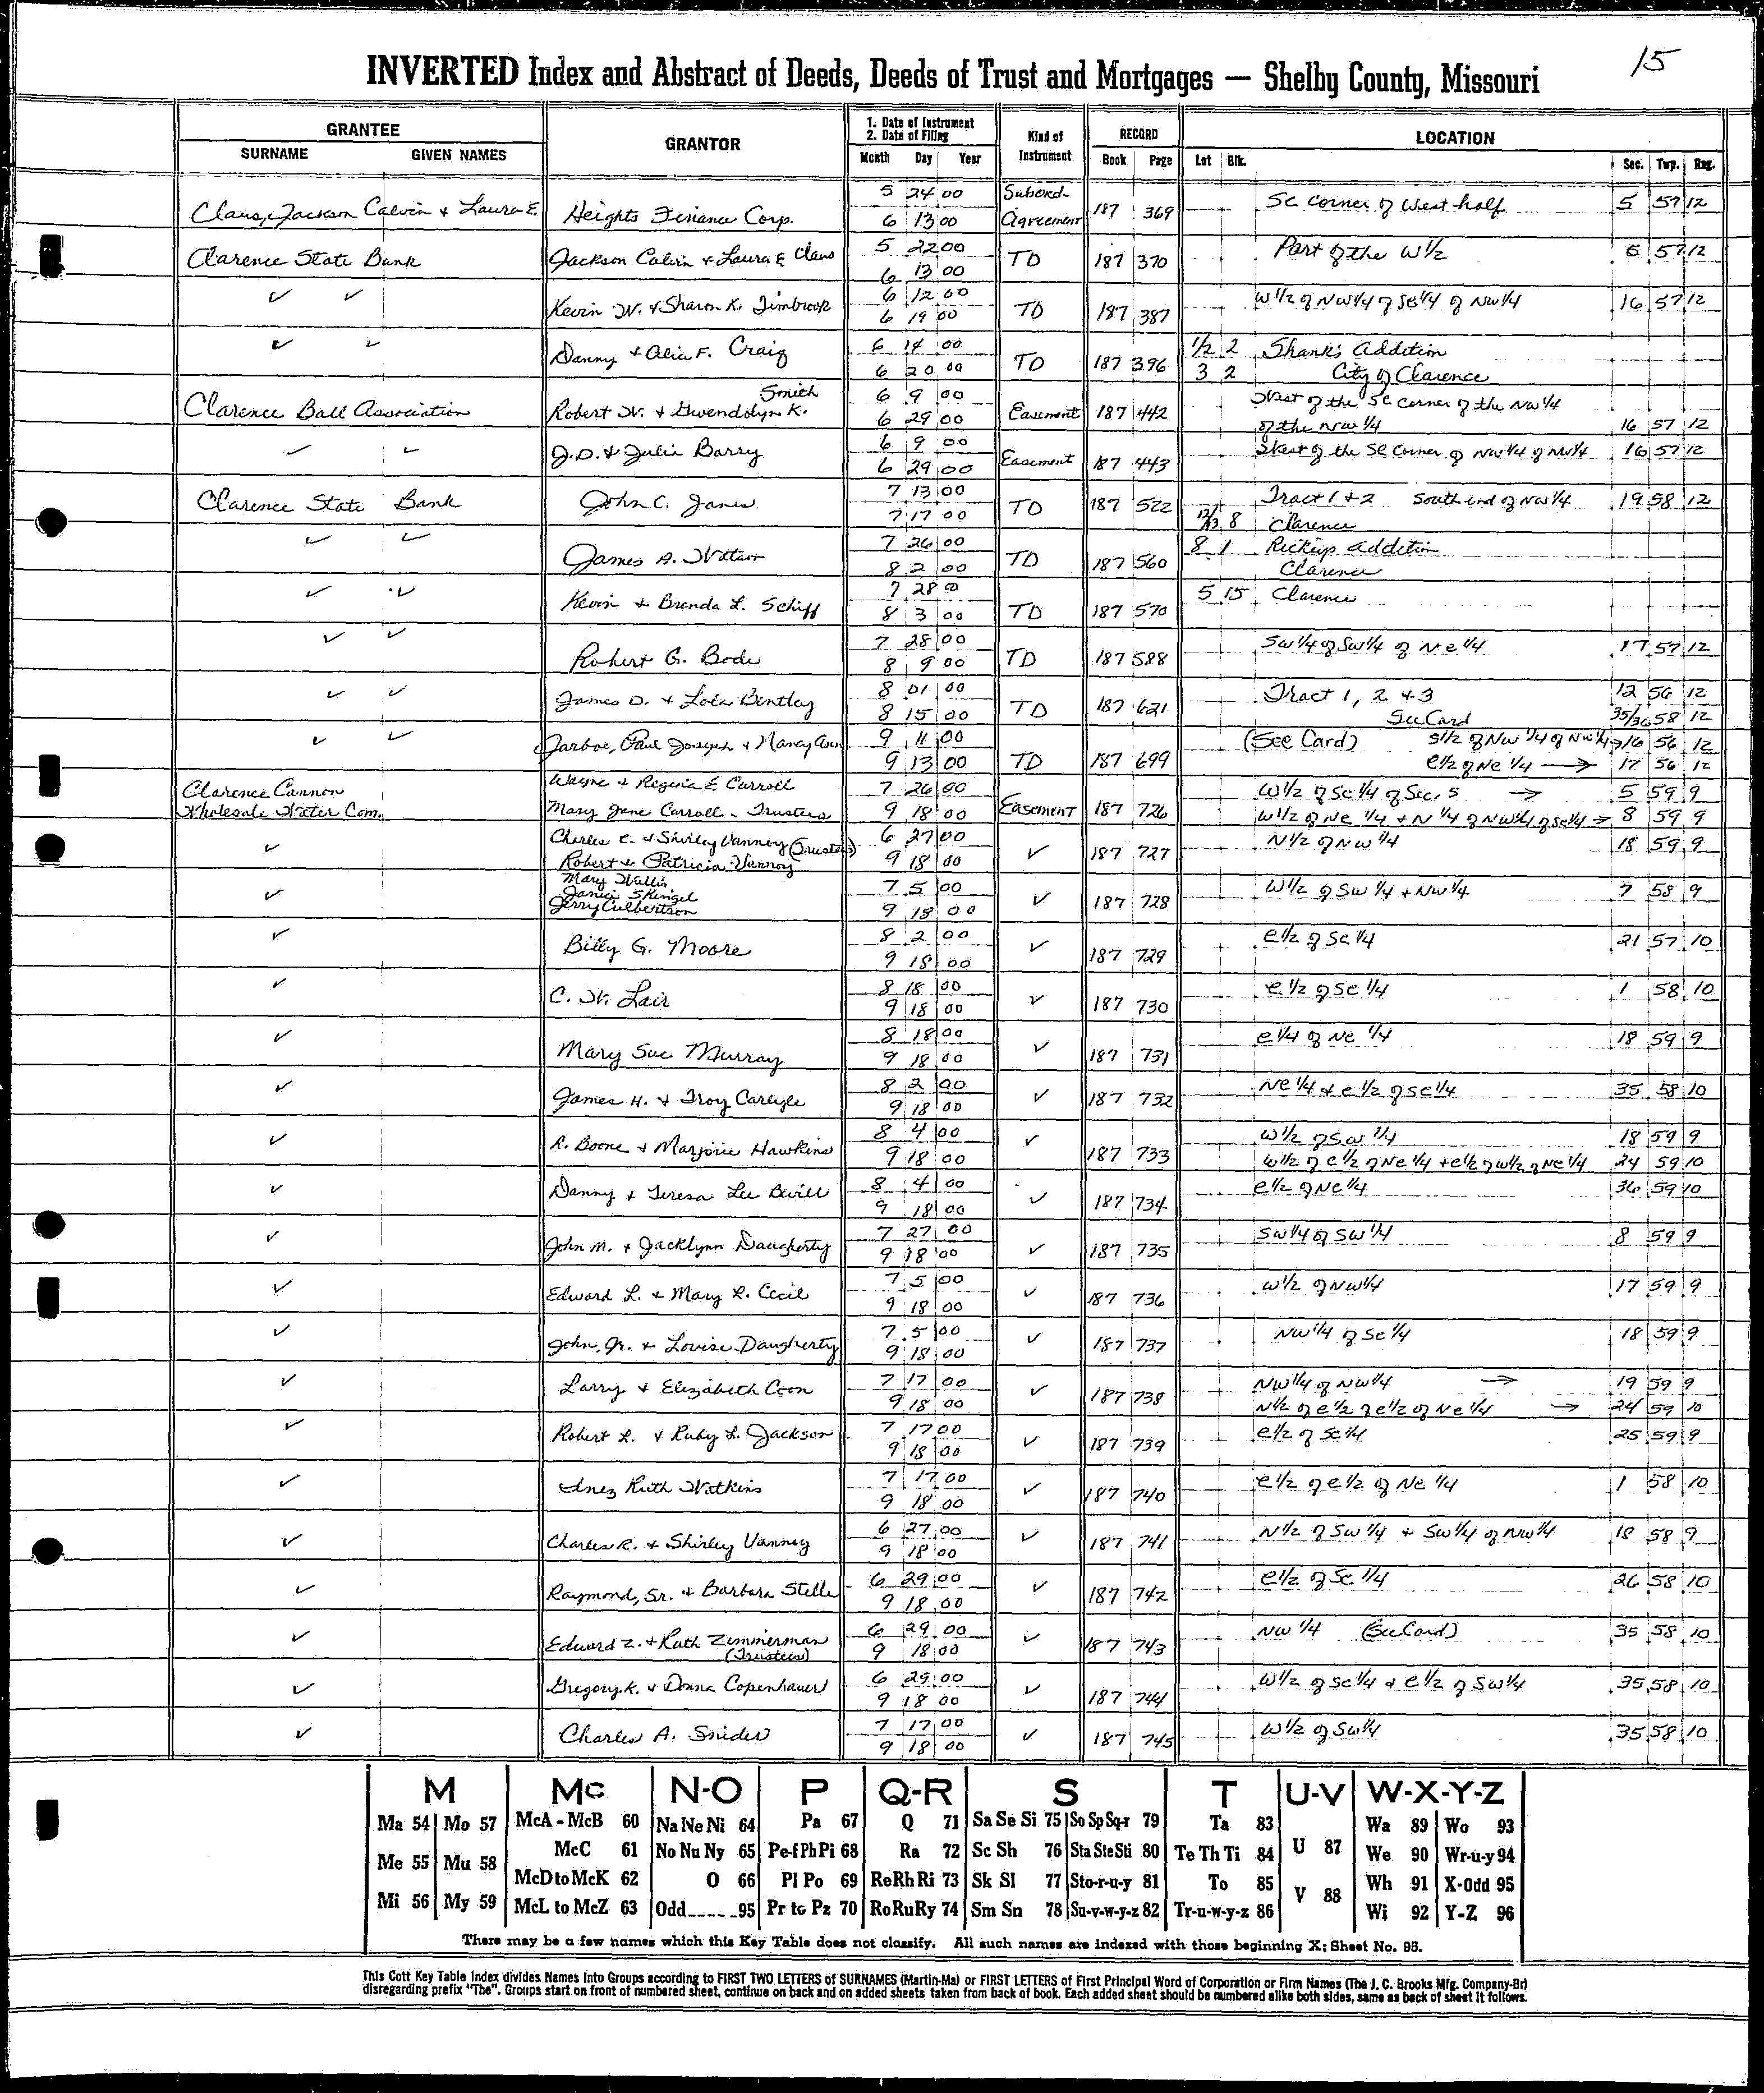 15
INVERTED Index and Abstract of Deeds, Deeds of Trust and Mortgages — Shelby County, Missouri
GRANTEE GRANTOR 1. Date of Instrument 2. Date of Filing Kind of Instrument RECORD LOCATION
SURNAME GIVEN NAMES Month Day Year Book Page Lot Blk. Sec. Twp. Rng.
Claus, Jackson Calvin & Laura E. Heights Finance Corp. 5 24 00 Subord. Agreement 187 369 Se corner of West half 5 57 12
6 13 00
Clarence State Bank Jackson Calvin & Laura E Claus 5 22 00 TD 187 370 Part of the W 1/2 5 57 12
6 13 00
✓ ✓ Kevin W. & Sharon K. Timbrook 6 12 00 TD 187 387 W 1/2 of NW 1/4 of Se 1/4 of NW 1/4 16 57 12
6 19 00
✓ ✓ Danny & Alia F. Craig 6 14 00 TD 187 396 1/2 2 Shank's Addition
6 20 00 3 2 City of Clarence
Clarence Ball Association Robert W. & Gwendolyn K. Smith 6 9 00 Easement 187 442 West of the Se Corner of the NW 1/4
6 29 00 of the NW 1/4 16 57 12
✓ ✓ J.D. & Julia Barry 6 9 00 Easement 187 443 West of the Se Corner of NW 1/4 of NW 1/4 16 57 12
6 29 00
Clarence State Bank John C. Janes 7 13 00 TD 187 522 Tract 1 & 2 South end of NW 1/4 19 58 12
7 17 00 12/13 8 Clarence
✓ ✓ James A. Watson 7 26 00 TD 187 560 8 1 Rickup Addition
8 2 00 Clarence
✓ ✓ Kevin & Brenda L. Schiff 7 28 00 TD 187 570 5 15 Clarence
8 3 00
✓ ✓ Robert G. Bode 7 28 00 TD 187 588 SW 1/4 of SW 1/4 of Ne 1/4 17 57 12
8 9 00
✓ ✓ James D. & Lola Bentley 8 01 00 TD 187 621 Tract 1, 2 & 3 12 56 12
8 15 00 See Card 35/36 58 12
✓ ✓ Jarboe, Paul Joseph & Nancy Ann 9 11 00 TD 187 699 (See Card) S 1/2 of NW 1/4 of NW 1/4 → 16 56 12
9 13 00 E 1/2 of Ne 1/4 → 17 56 12
Clarence Cannon Wayne & Regina E Carroll 7 26 00 W 1/2 of Se 1/4 of Sec. 5 → 5 59 9
Wholesale Water Com. Mary Jane Carroll - Trustees 9 18 00 Easement 187 726 W 1/2 of Ne 1/4 & N 1/4 of NW 1/4 of Se 1/4 → 8 59 9
✓ Charles E. & Shirley Vannoy (Trustees) 6 27 00 ✓ 187 727 N 1/2 of NW 1/4 18 59 9
Robert & Patricia Vannoy 9 18 00
✓ Mary Wallis 7 5 00 ✓ 187 728 W 1/2 of SW 1/4 & NW 1/4 7 58 9
Janice Skingel
Jerry Culbertson 9 18 00
✓ Billy G. Moore 8 2 00 ✓ 187 729 E 1/2 of Se 1/4 21 57 10
9 18 00
✓ C. W. Lair 8 18 00 ✓ 187 730 E 1/2 of Se 1/4 1 58 10
9 18 00
✓ Mary Sue Murray 8 18 00 ✓ 187 731 E 1/4 of Ne 1/4 18 59 9
9 18 00
✓ James H. & Troy Carlyle 8 2 00 ✓ 187 732 Ne 1/4 & E 1/2 of Se 1/4 35 58 10
9 18 00
✓ R. Boone & Marjorie Hawkins 8 4 00 ✓ 187 733 W 1/2 of SW 1/4 18 59 9
9 18 00 W 1/2 of E 1/2 of Ne 1/4 & E 1/2 of W 1/2 of Ne 1/4 24 59 10
✓ Danny & Teresa Lee Bevill 8 4 00 ✓ 187 734 E 1/2 of Ne 1/4 36 59 10
9 18 00
✓ John M. & Jacklynn Daugherty 7 27 00 ✓ 187 735 SW 1/4 of SW 1/4 8 59 9
9 18 00
✓ Edward L. & Mary R. Cecil 7 5 00 ✓ 187 736 W 1/2 of NW 1/4 17 59 9
9 18 00
✓ John, Jr. & Louise Daugherty 7 5 00 ✓ 187 737 NW 1/4 of Se 1/4 18 59 9
9 18 00
✓ Larry & Elizabeth Coon 7 17 00 ✓ 187 738 NW 1/4 of NW 1/4 → 19 59 9
9 18 00 N 1/2 of E 1/2 of E 1/2 of Ne 1/4 → 24 59 10
✓ Robert L. & Ruby L. Jackson 7 17 00 ✓ 187 739 E 1/2 of Se 1/4 25 59 9
9 18 00
✓ Inez Ruth Watkins 7 17 00 ✓ 187 740 E 1/2 of E 1/2 of Ne 1/4 1 58 10
9 18 00
✓ Charles R. & Shirley Vannoy 6 27 00 ✓ 187 741 N 1/2 of SW 1/4 & SW 1/4 of NW 1/4 18 58 9
9 18 00
✓ Raymond, Sr. & Barbara Stelle 6 29 00 ✓ 187 742 E 1/2 of Se 1/4 26 58 10
9 18 00
✓ Edward Z. & Ruth Zimmerman 6 29 00 ✓ 187 743 NW 1/4 (See Card) 35 58 10
(Trustees) 9 18 00
✓ Gregory K. & Donna Copenhaver 6 29 00 ✓ 187 744 W 1/2 of Se 1/4 & E 1/2 of SW 1/4 35 58 10
9 18 00
✓ Charles A. Snider 7 17 00 ✓ 187 745 W 1/2 of SW 1/4 35 58 10
9 18 00
M Mc N-O P Q-R S T U-V W-X-Y-Z
Ma 54 Mo 57 McA - McB 60 Na Ne Ni 64 Pa 67 Q 71 Sa Se Si 75 So Sp Sq-r 79 Ta 83 Wa 89 Wo 93
Me 55 Mu 58 McC 61 No Nu Ny 65 Pe-f Ph Pi 68 Ra 72 Sc Sh 76 Sta Ste Sti 80 Te Th Ti 84 U 87 We 90 Wr-u-y 94
McD to McK 62 O 66 Pl Po 69 Re Rh Ri 73 Sk Sl 77 Sto-r-u-y 81 To 85 V 88 Wh 91 X-Odd 95
Mi 56 My 59 McL to McZ 63 Odd 95 Pr to Pz 70 Ro Ru Ry 74 Sm Sn 78 Su-v-w-y-z 82 Tr-u-w-y-z 86 Wi 92 Y-Z 96
There may be a few names which this Key Table does not classify. All such names are indexed with those beginning X; Sheet No. 95.
This Cott Key Table Index divides Names into Groups according to FIRST TWO LETTERS of SURNAMES (Martin-Ma) or FIRST LETTERS of First Principal Word of Corporation or Firm Names (The J. C. Brooks Mfg. Company-Br)
disregarding prefix "The". Groups start on front of numbered sheet, continue on back and on added sheets taken from back of book. Each added sheet should be numbered alike both sides, same as back of sheet it follows.